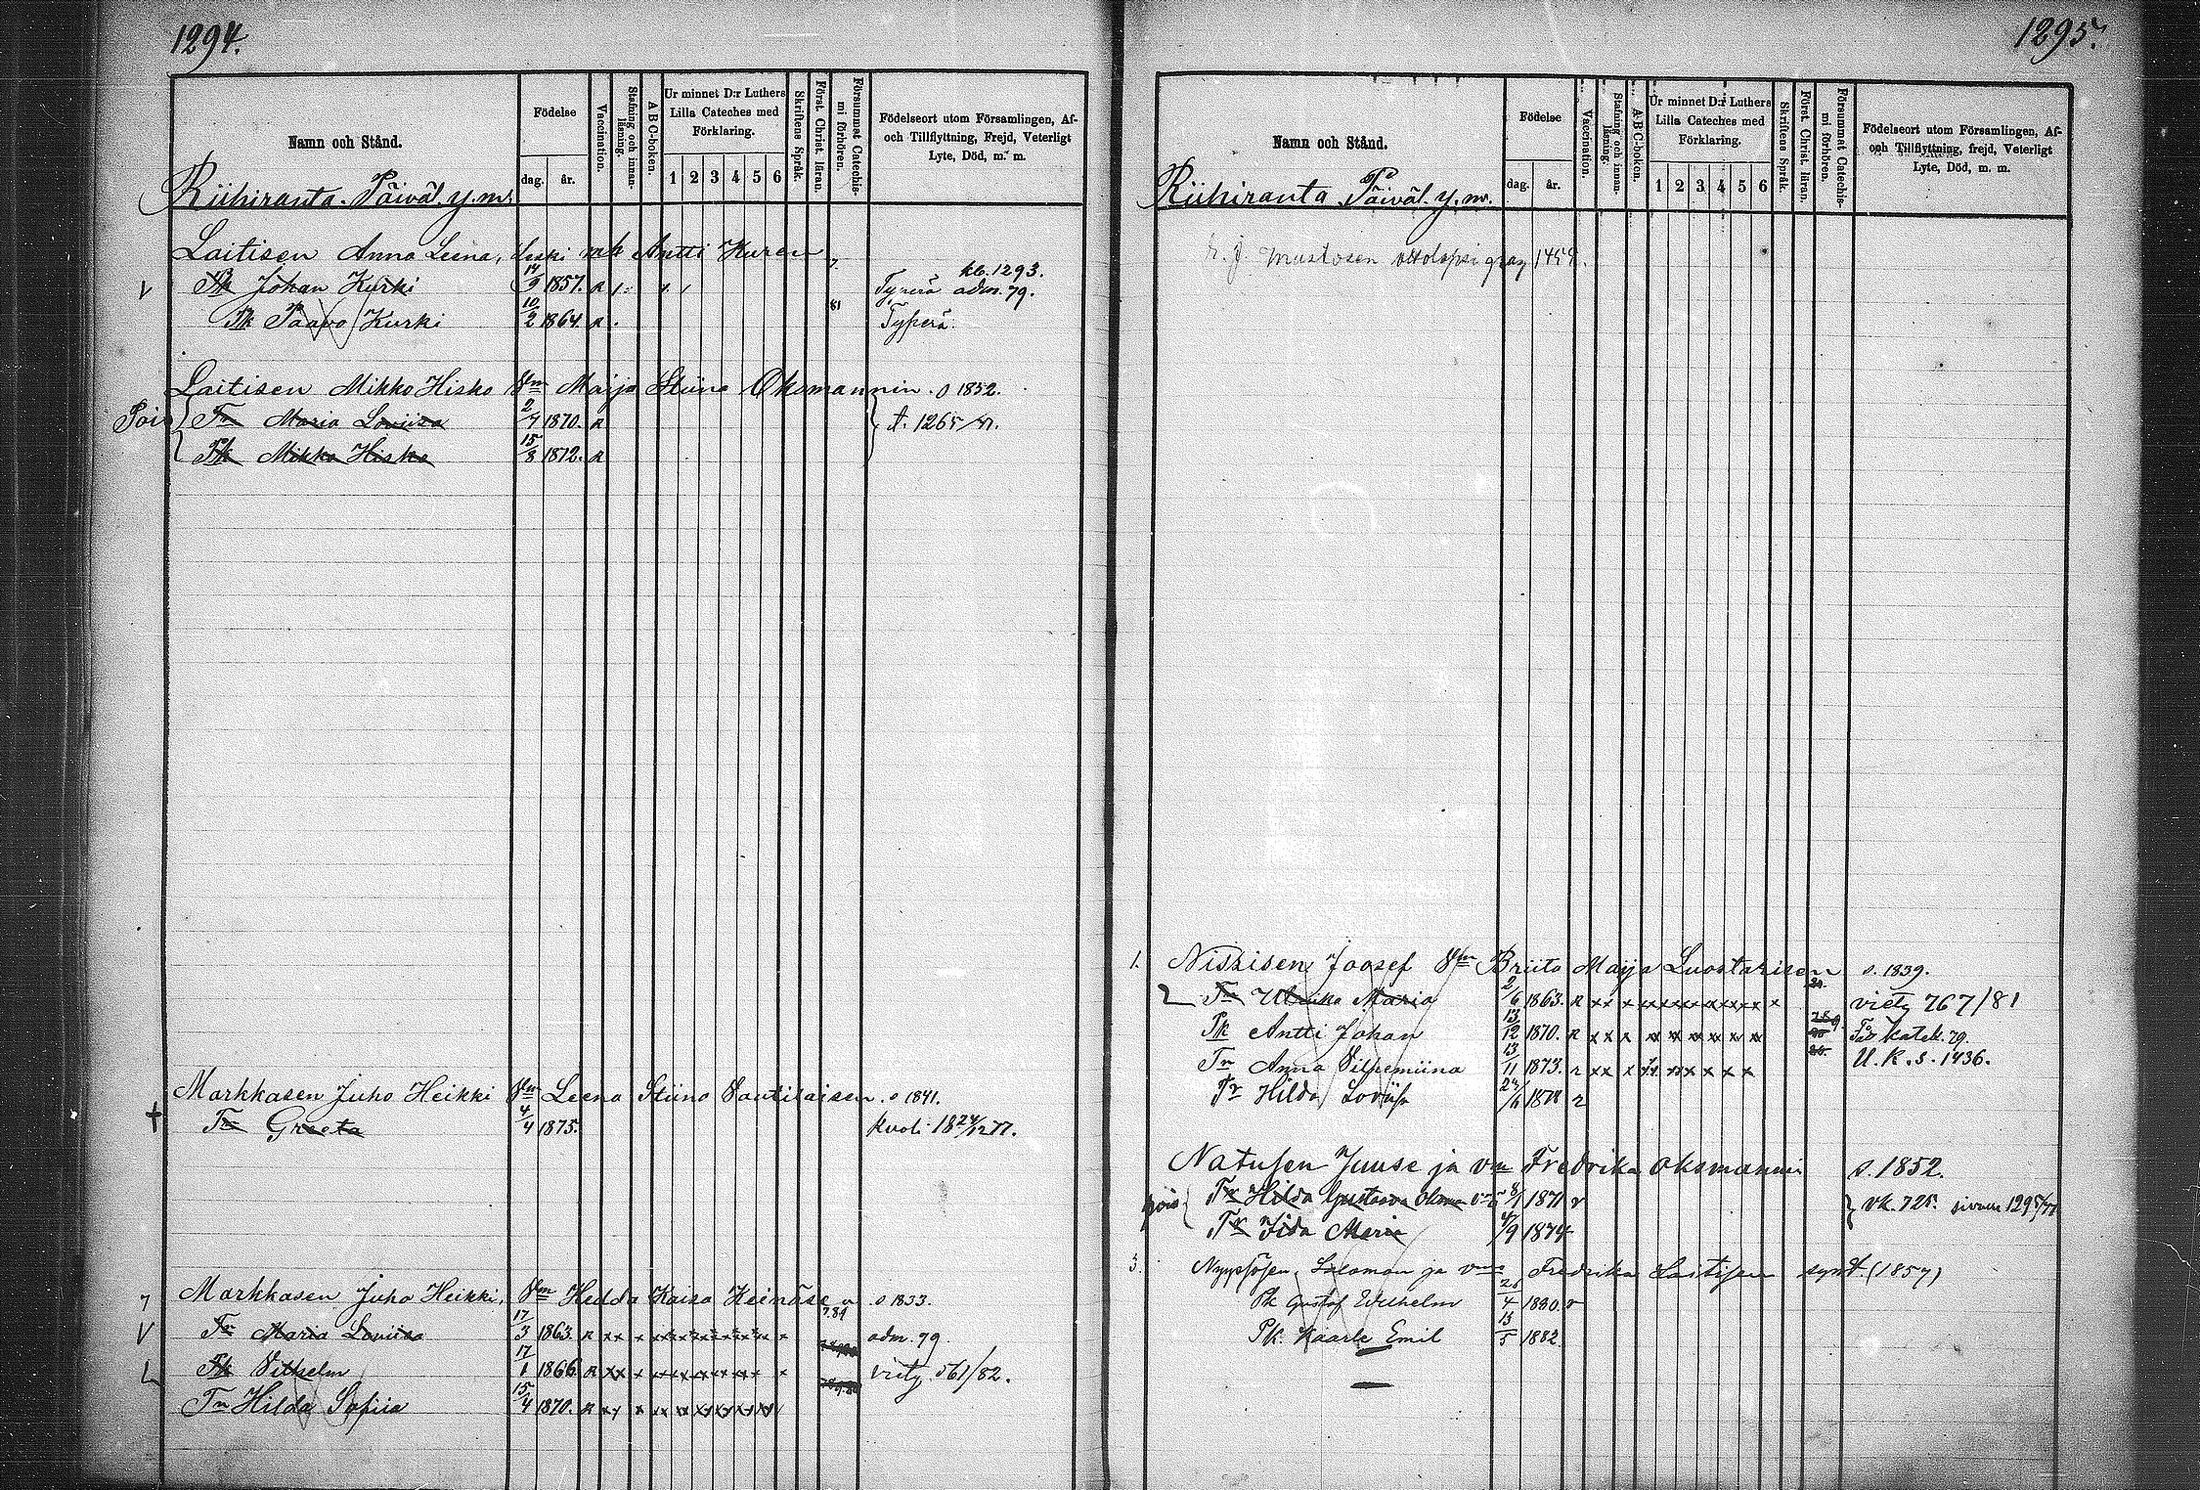 1294.
Namn och Stånd.
Födelse
dag. år.
Vaccination.
Stafning och innanläsning.
A B C-boken.
Ur minnet D:r Luthers Lilla Cateches med Förklaring.
1 2 3 4 5 6
Skriftens Språk.
Först. Christ. läran.
Försummat Catechismi förhören.
Födelseort utom Församlingen, Af- och Tillflyttning, Frejd, Veterligt Lyte, Död, m. m.
Riihiranta. Päiväl. y. m.
Laitisen Anna Leena, Leski mh Antti Kuren
Pk Johan Kurki 14/9 1857. R kb. 1293. adm. 79.
Pk Paavo Kurki 10/2 1864. R 81
Laitisen Mikko Hisko Vm Maija Stiina Oksmannin. s 1852.
Pois Tr Maria Loviisa 2/7 1870. R
Pk Mikko Hisko 15/8 1872. R
Markkasen Juho Heikki Vm Leena Stiina s 1841.
† Tr Greeta 4/4 1875. kuoli 18 24/12 77.
Markkasen Juho Heikki, Vm Hedda Kaisa s 1833.
V Tr Maria Loviisa 17/3 1863. R xx x adm. 79.
Pk Vilhelm 17/1 1866. R xx x 561/82.
Tr Hilda Sofiia 15/4 1870. R
1295.
Namn och Stånd.
Födelse
dag. år.
Vaccination.
Stafning och innanläsning.
A B C-boken.
Ur minnet D:r Luthers Lilla Cateches med Förklaring.
1 2 3 4 5 6
Skriftens Språk.
Först. Christ. läran.
Försummat Catechismi förhören.
Födelseort utom Församlingen, Af- och Tillflyttning, frejd, Veterligt Lyte, Död, m. m.
Riihiranta Päiväl. y. m.
Mustosen
1. Niskisen Joosef Vm Briita Maija Luostarisen s. 1839.
Tr Ulriika Maria 2/6 1863. R xx x 767/81
Pk Antti Johan 13/12 1870. R xx x katek. 79.
Tr Anna Vilhemiina 13/11 1873. r xx x U. K. s. 1436.
Tr Hilda Loviisa 1878 r
Natusen Juuse ja vm Fredrika Oksmanni s. 1852.
pois Tr Hilda Gustaava 8/1 1871 r vk. 725. sivulle 1295
Tr Iida Maria 1874
3. Salomon ja vmo Fredrika Laitisen synt. (1857)
Pk Gustaf Wilhelm 26/4 1880. r
Pk. Kaarle Emil 13/5 1882